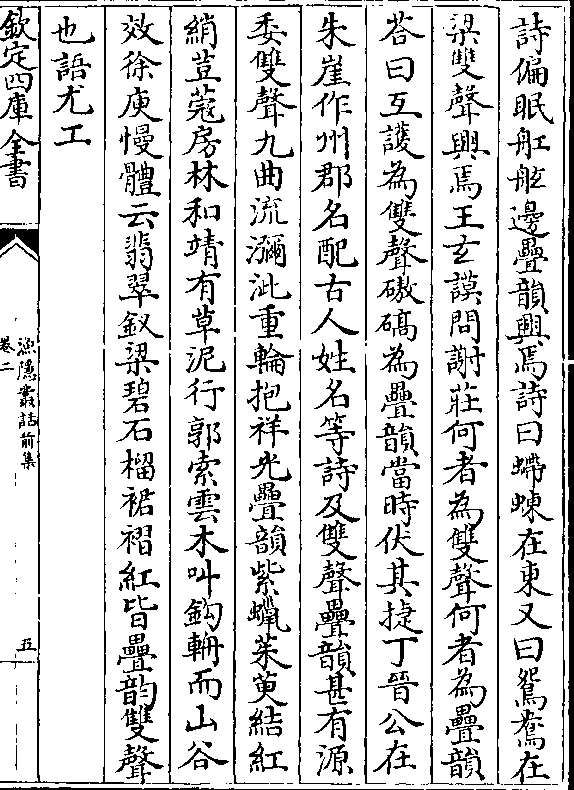 詩偏眠舡舷邊疊韻興焉詩曰螮蝀在東又曰鴛鴦在
梁雙聲興焉王玄謨問謝莊何者為雙聲何者為疊韻
荅曰互護為雙聲磝碻為疊韻當時伏其捷丁晉公在
朱崖作州郡名配古人姓名等詩及雙聲疊韻甚有源
委雙聲九曲流瀰泚重輪抱祥光疊韻紫蠟茱萸結紅
綃荳蔻房林和靖有草泥行郭索雲木叫鈎輈而山谷
效徐庾慢體云翡翠釵梁碧石榴裙褶紅皆疊韵雙聲
也語尤工
欽定四庫全書
漁隱叢話前集
卷二
五